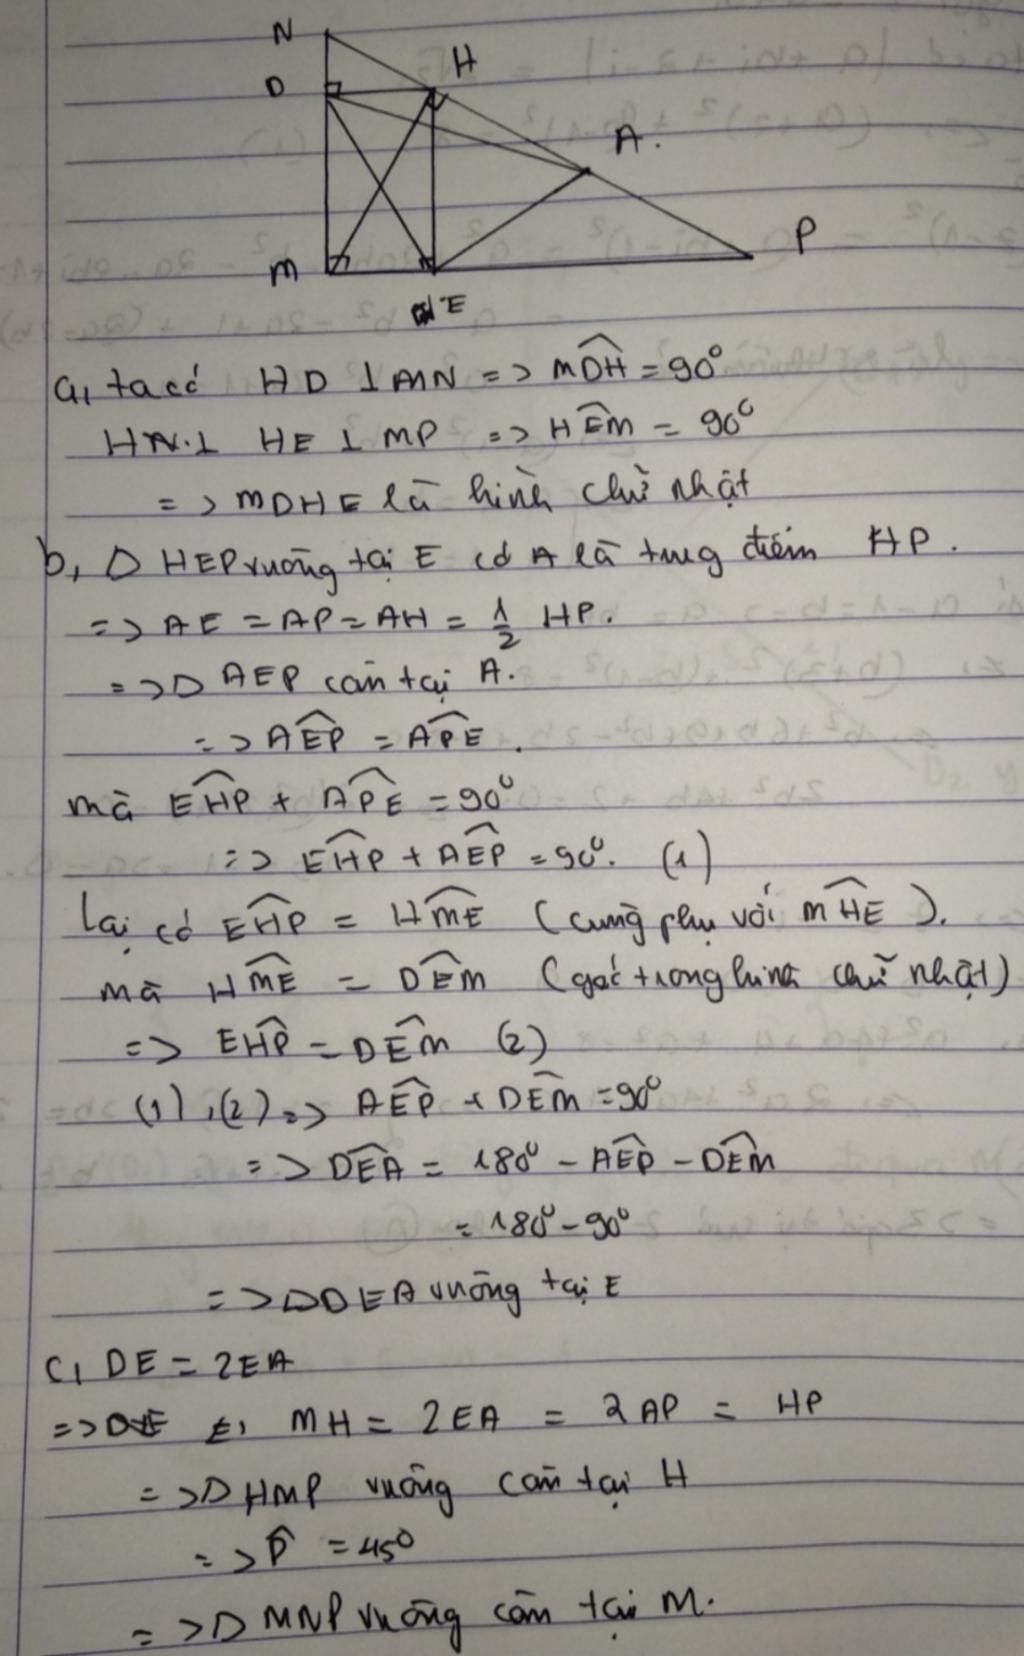 N
D
H
A.
M
E
P
a, ta có HD ⊥ MN => MDH = 90°
HE ⊥ MP => HEM = 90°
=> MDHE là hình chữ nhật
b, Δ HEP vuông tại E có A là trung điểm HP.
=> AE = AP = AH = 1/2 HP.
=> Δ AEP cân tại A.
=> AEP = APE.
mà EHP + APE = 90°
=> EHP + AEP = 90°. (1)
Lại có EHP = HME (cùng phụ với MHE).
mà HME = DEM (góc trong hình chữ nhật)
=> EHP = DEM (2)
(1), (2) => AEP + DEM = 90°
=> DEA = 180° - AEP - DEM
= 180° - 90°
=> Δ DEA vuông tại E
c, DE = 2EA
<=> MH = 2EA = 2AP = HP
=> Δ HMP vuông cân tại H
=> P = 45°
=> Δ MNP vuông cân tại M.